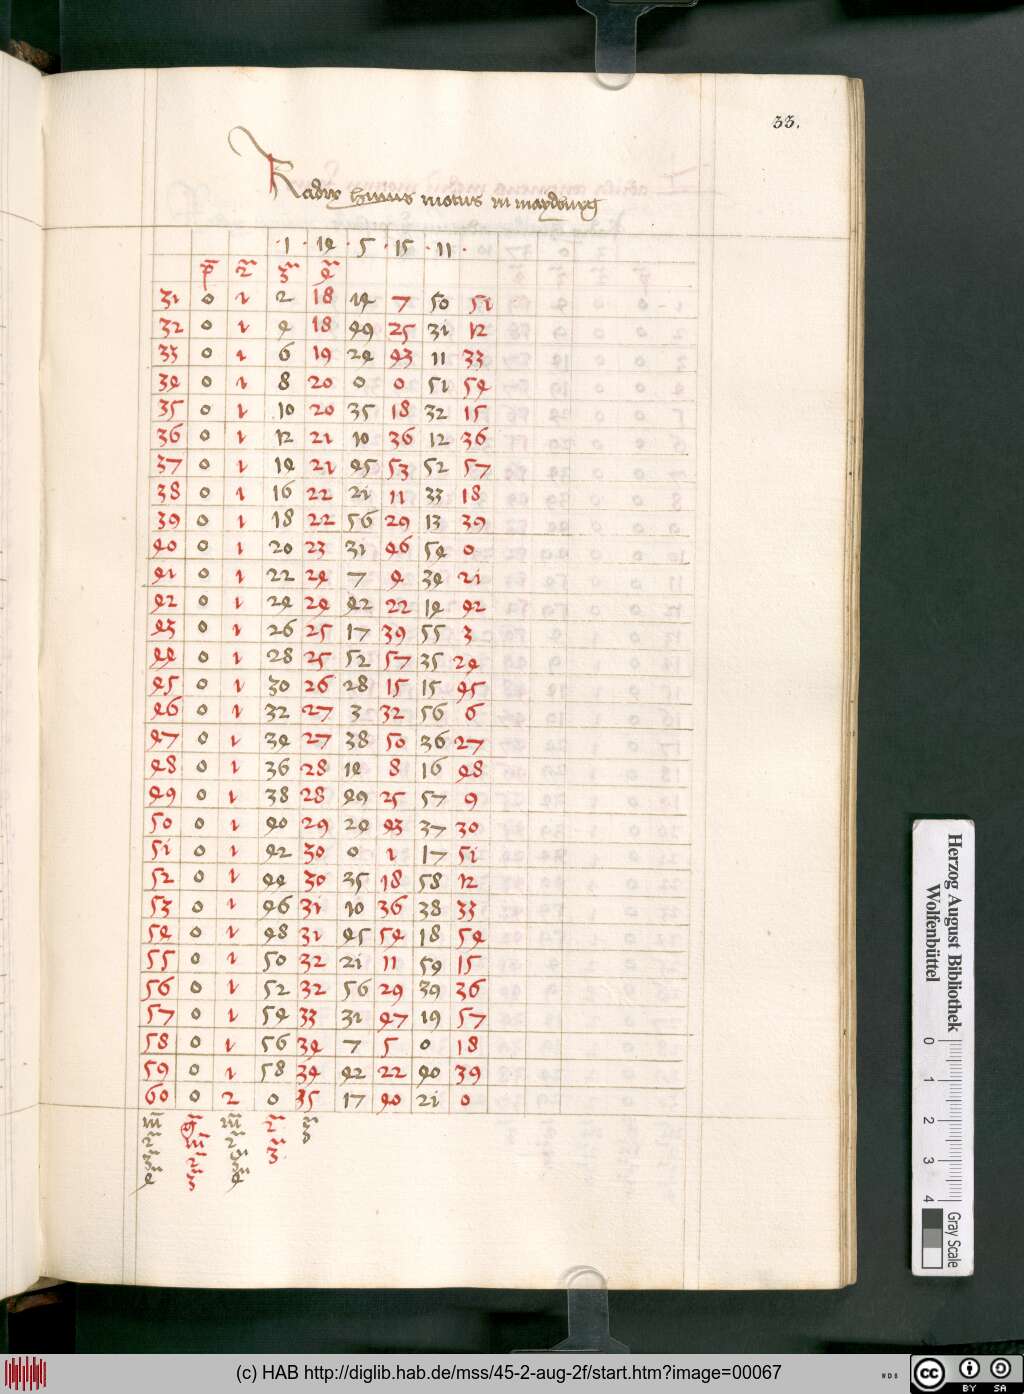 33.
Radix huius motus in maydburg
· 1 · 14 · 5 · 15 · 11 ·
p̄ 2 3 4
31 0 1 2 18 14 7 50 51
32 0 1 4 18 49 25 31 12
33 0 1 6 19 24 43 11 33
34 0 1 8 20 0 0 51 54
35 0 1 10 20 35 18 32 15
36 0 1 12 21 10 36 12 36
37 0 1 14 21 45 53 52 57
38 0 1 16 22 21 11 33 18
39 0 1 18 22 56 29 13 39
40 0 1 20 23 31 46 54 0
41 0 1 22 24 7 4 34 21
42 0 1 24 24 42 22 14 42
43 0 1 26 25 17 39 55 3
44 0 1 28 25 52 57 35 24
45 0 1 30 26 28 15 15 45
46 0 1 32 27 3 32 56 6
47 0 1 34 27 38 50 36 27
48 0 1 36 28 14 8 16 48
49 0 1 38 28 49 25 57 9
50 0 1 40 29 24 43 37 30
51 0 1 42 30 0 1 17 51
52 0 1 44 30 35 18 58 12
53 0 1 46 31 10 36 38 33
54 0 1 48 31 45 54 18 54
55 0 1 50 32 21 11 59 15
56 0 1 52 32 56 29 39 36
57 0 1 54 33 31 47 19 57
58 0 1 56 34 7 5 0 18
59 0 1 58 34 42 22 40 39
60 0 2 0 35 17 40 21 0
m̄ g̃ m̄ 2 3
2 m̄ 2 3
3 2 3
4 3 4
Herzog August Bibliothek
Wolfenbüttel
0 1 2 3 4
Gray Scale
(c) HAB http://diglib.hab.de/mss/45-2-aug-2f/start.htm?image=00067
cc BY SA